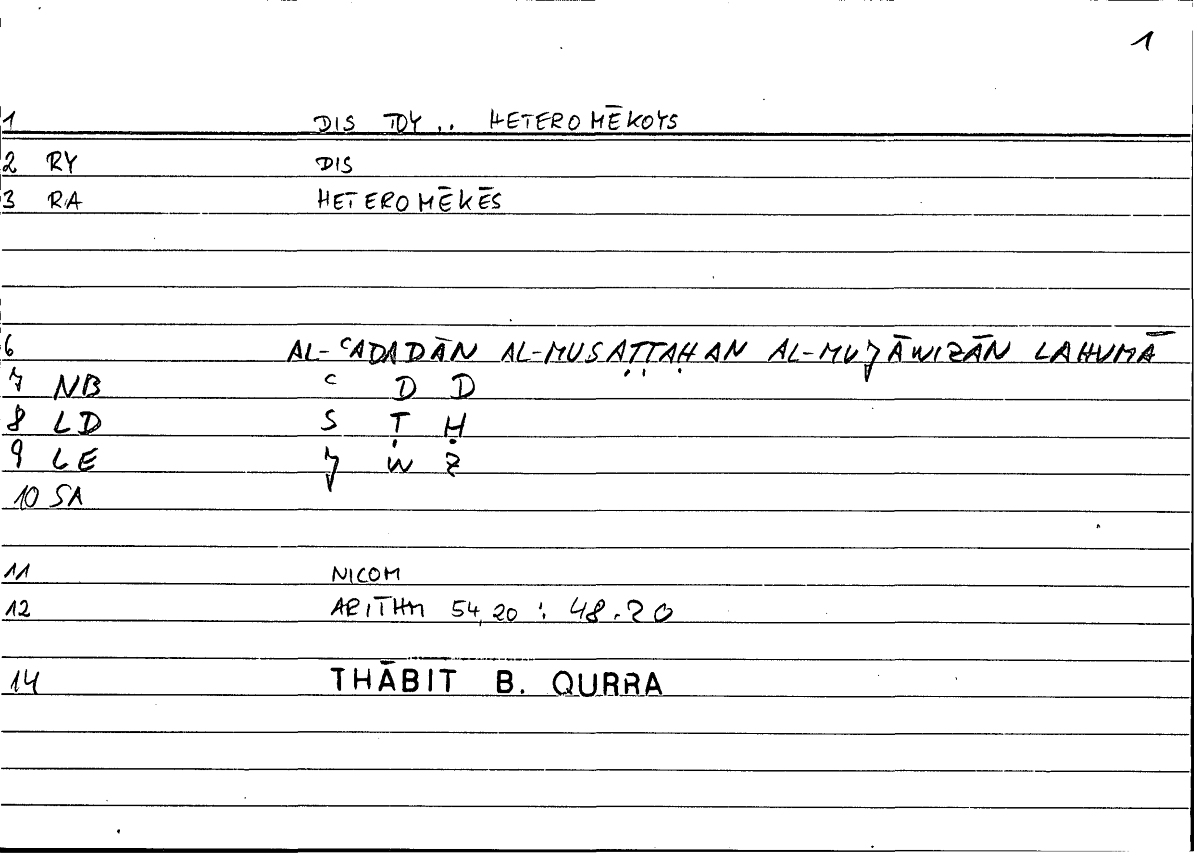 1
1 DIS TOY .. HETEROMĒKOYS
2 RY DIS
3 RA HETEROMĒKĒS
6 AL-ʿADADĀN AL-MUSAṬṬAḤAN AL-MUJĀWIZĀN LAHUMĀ
7 NB ʿ D D
8 LD S Ṭ Ḥ
9 LE J W Z
10 SA
11 NICOM
12 ARITHM 54,20 : 48.20
14 THĀBIT B. QURRA